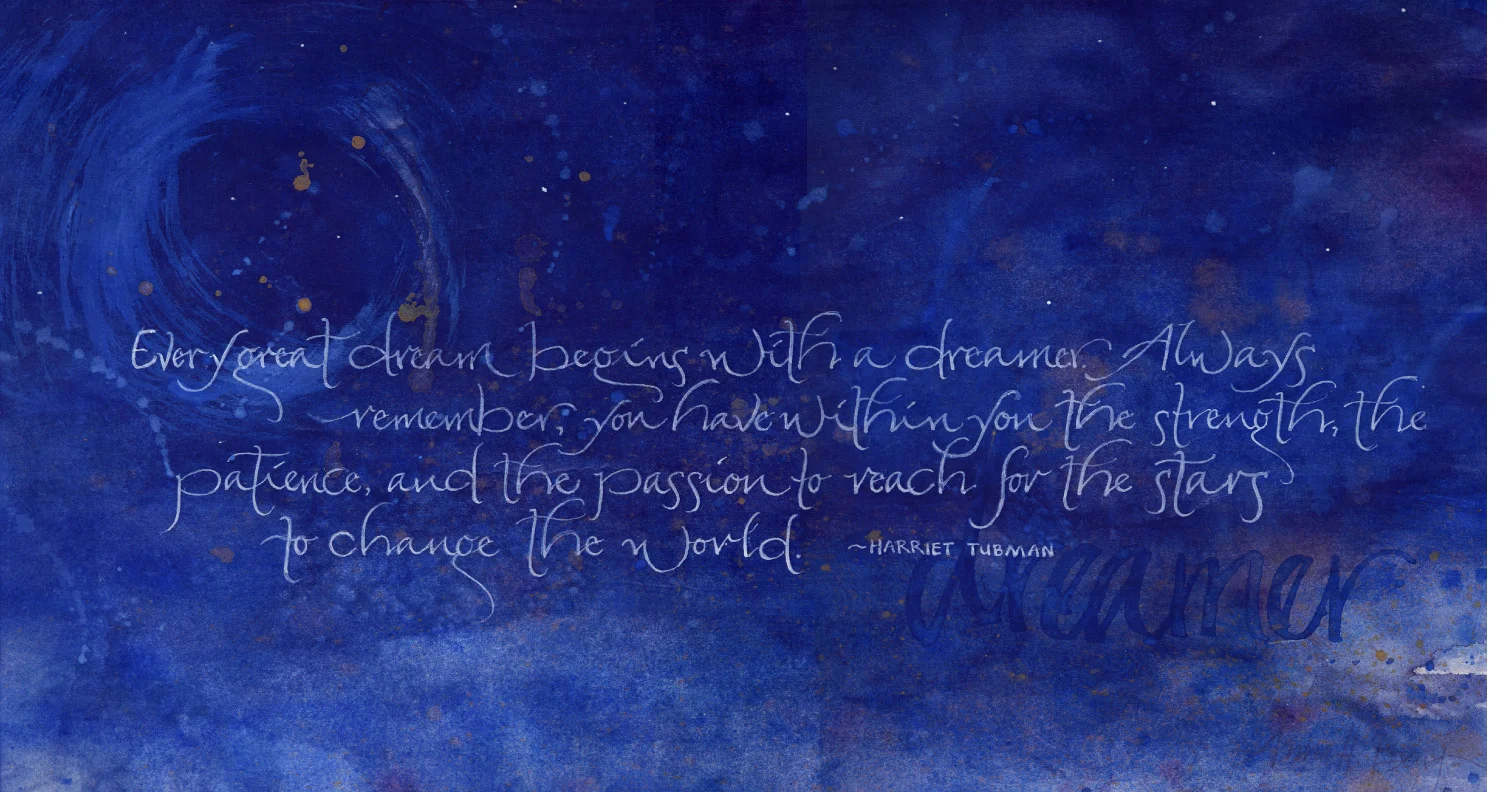 Every great dream begins with a dreamer. Always
remember, you have within you the strength, the
patience, and the passion to reach for the stars
to change the world.
~HARRIET TUBMAN
dreamer